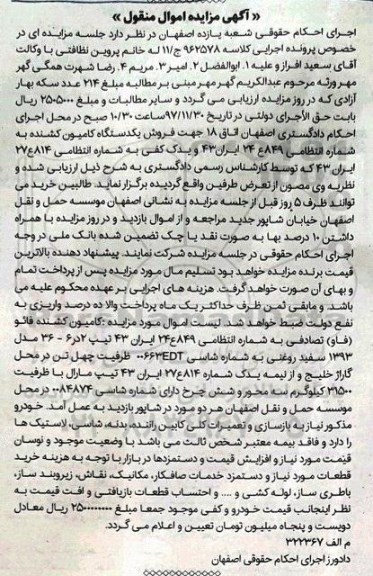 « آگهی مزایده اموال منقول »
اجرای احکام حقوقی شعبه یازده اصفهان در نظر دارد جلسه مزایده ای در
خصوص پرونده اجرایی کلاسه ۹۶۲۵۷۸ ج/۱۱ له خانم پروین نظافتی با وکالت
آقای سعید افراز و علیه ۱. ابوالفضل ۲. امیر ۳. مریم ۴. رضا شهرت همگی گهر
مهر ورثه مرحوم عبدالکریم گهر مهر مبنی بر مطالبه مبلغ ۲۱۴ عدد سکه بهار
آزادی که در روز مزایده ارزیابی می گردد و سایر مطالبات و مبلغ ۲۵۰۵۰۰۰ ریال
بابت حق الأجرای دولتی در تاریخ ۹۷/۱۱/۳۰ساعت ۱۰/۳۰ صبح در محل اجرای
احکام دادگستری اصفهان اتاق ۱۸ جهت فروش یکدستگاه کامیون کشنده به
شماره انتظامی ۸۴۹ع ۲۴ ایران۴۳ و یدک کفی به شماره انتظامی ۸۱۴ع۲۷
ایران ۴۳ که توسط کارشناس رسمی دادگستری به شرح ذیل ارزیابی شده و
نظریه وی مصون از تعرض طرفین واقع گردیده برگزار نماید. طالبین خرید می
توانند ظرف ۵ روز قبل از جلسه مزایده به نشانی اصفهان موسسه حمل و نقل
اصفهان خیابان شاپور جدید مراجعه و از اموال بازدید و در روز مزایده با همراه
داشتن ۱۰ درصد بها به صورت نقد یا چک تضمین شده بانک ملی در وجه
اجرای احکام حقوقی در جلسه مزایده شرکت نمایند. پیشنهاد دهنده بالاترین
قیمت برنده مزایده خواهد بود تسلیم مال مورد مزایده پس از پرداخت تمام
و بهای آن صورت خواهد گرفت. هزینه های اجرایی بر عهده محکوم علیه می
باشد. و مابقی ثمن ظرف حداکثر یک ماه پرداخت والا ده درصد واریزی به
نفع دولت ضبط خواهد شد. لیست اموال مورد مزایده :کامیون کشنده فائو
(فاو) تصادفی به شماره انتظامی ۸۴۹ع۲۴ ایران ۴۳ تیپ ۲در۶ - ۳۶۰ مدل
۱۳۹۳ سفید روغنی به شماره شاسی ۰۰۶۶۳EDT ظرفیت چهل تن در محل
گاراژ خلیج و از نیمه یدک شماره ۸۱۴ع۲۷ ایران ۴۳ تیپ مارال با ظرفیت
۳۱۵۰۰ کیلوگرم سه محور و شش چرخ دارای شماره شاسی ۰۰۸۴۸۷۴ در محل
موسسه حمل و نقل اصفهان هر دو مورد در شاپور بازدید به عمل آمد. خودرو
مذکور نیاز به بازسازی و تعمیرات کلی کابین راننده، بدنه، شاسی، لاستیک ها
را دارد و فاقد بیمه معتبر شخص ثالث می باشد با وضعیت موجود و نوسان
قیمت مورد نیاز و افزایش قیمت و دستمزدها در بازار با توجه به هزینه خرید
قطعات مورد نیاز و دستمزد خدمات صافکار، مکانیک، نقاش، زیروبند ساز،
باطری ساز، لوله کشی و .... و احتساب قطعات بازیافتی و افت قیمت به
نظر اینجانب قیمت خودرو و کفی موجود جمعا مبلغ ۲۵۰۰۰۰۰۰۰۰ ریال معادل
دویست و پنجاه میلیون تومان تعیین و اعلام می گردد.
م الف ۳۲۲۳۶۷
دادورز اجرای احکام حقوقی اصفهان